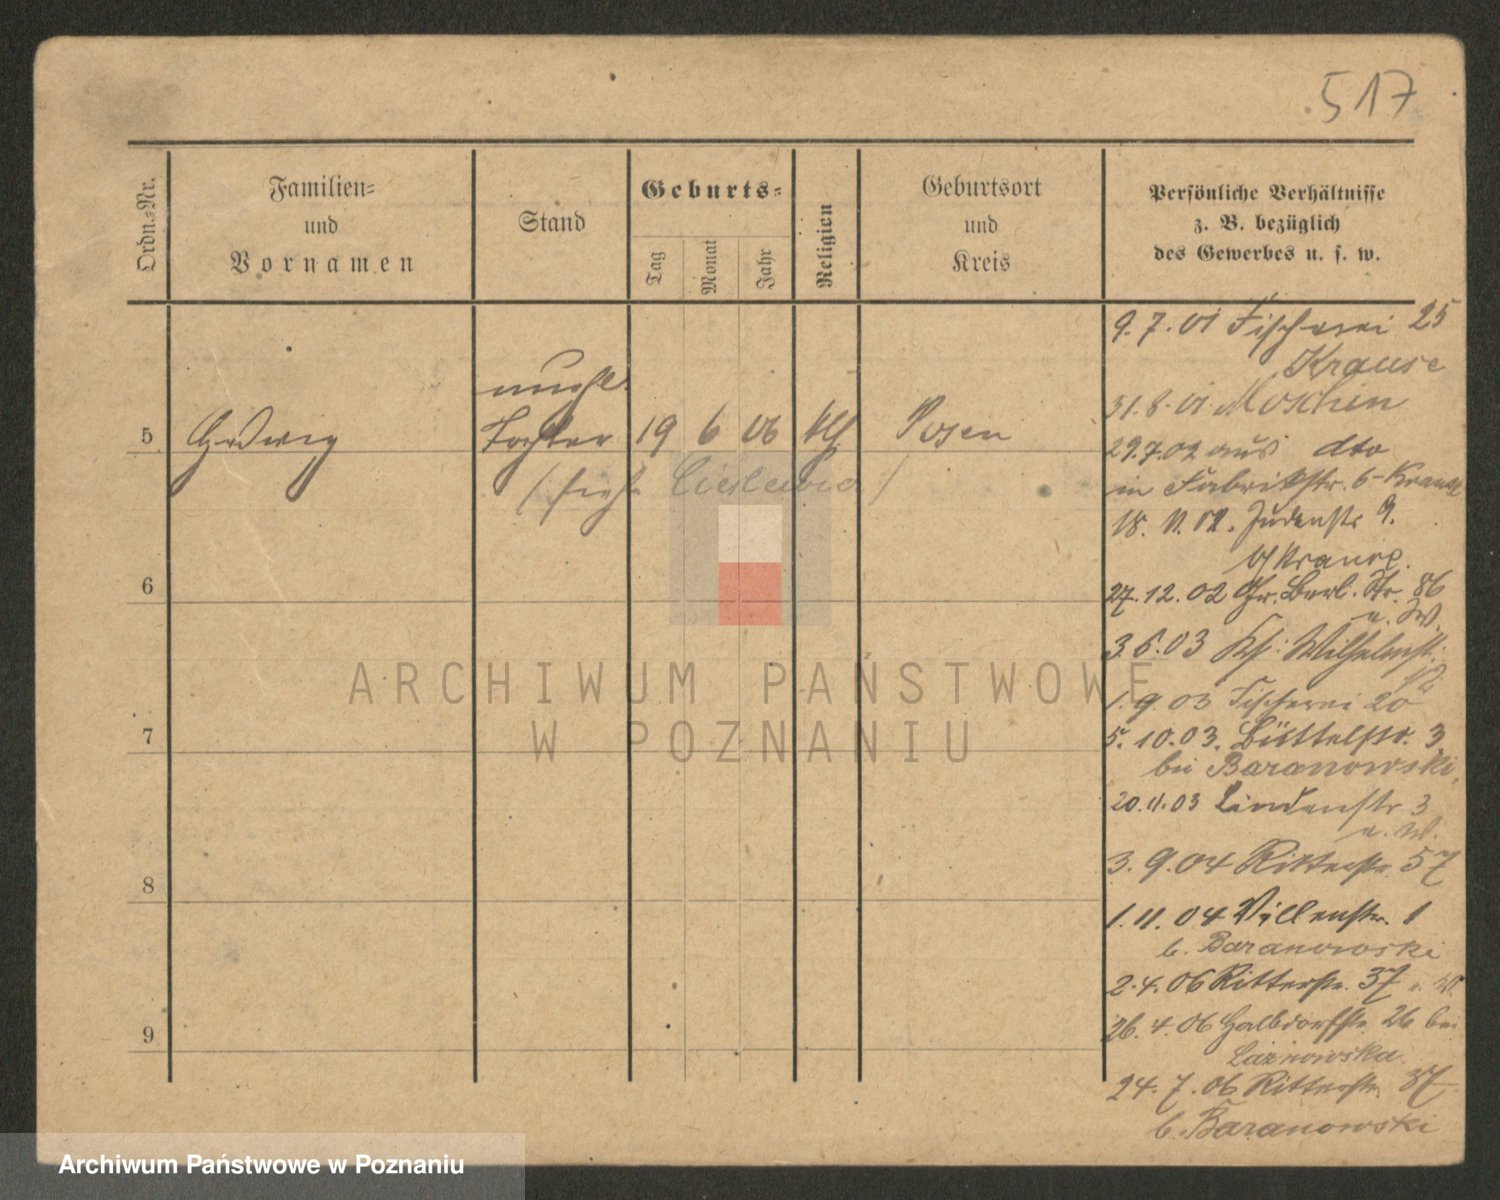 517
Ordn.-Nr.
Familien-
und
Vornamen
Stand
Geburts-
Tag
Monat
Jahr
Religion
Geburtsort
und
Kreis
Persönliche Verhältnisse
z. B. bezüglich
des Gewerbes u. s. w.
unehl.
5 Hedwig Tochter 19 6 06 kth Posen
(siehe Cieslewicz)
6
7
8
9
9.7.01 Fischerei 25
Krause
31.8.01 Moschin
29.7.02 aus dto
in Fabrikstr. 6 - Krause
18. 11. 02. Judenstr 9.
b/Krause.
27.12.02 Gr. Berl. Str. 86
a. W.
3 6.03 Kl: Wilhelmstr.
1.9.03 Fischerei 20
5.10.03. Büttelstr. 3
bei Baranowski.
20.11.03 Lindenstr 3
a. W.
3.9.04 Ritterstr. 57
1.11.04 Villenstr. 1
b. Baranowski
2.4.06 Ritterstr. 37 a. W.
26.4.06 Halbdorfstr. 26 bei
Laznowska
24.7.06 Ritterstr. 37
b. Baranowski
ARCHIWUM PAŃSTWOWE
W POZNANIU
Archiwum Państwowe w Poznaniu